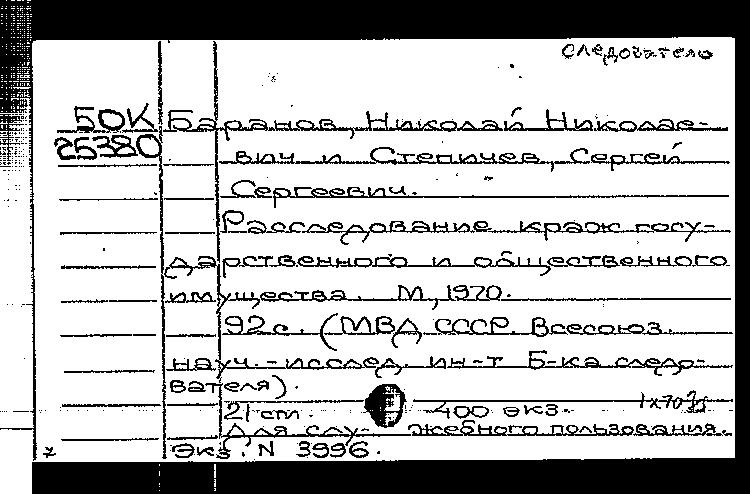 следователю
50К Баранов, Николай Николае-
25380 вич и Степичев, Сергей
Сергеевич.
Расследование краж госу-
дарственного и общественного
имущества. М, 1970.
92 с. (МВД СССР. Всесоюз.
науч.-исслед. ин-т Б-ка следо-
вателя).
21 см. 400 экз.
Для слу- жебного пользования.
Экз. N 3996.